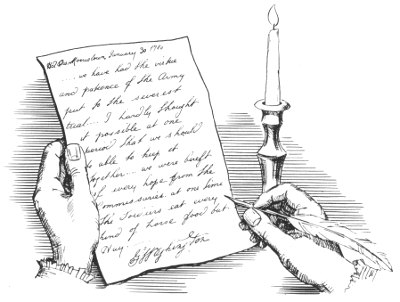 Hd Qrs Morristown, January 30 1780
.... we have had the virtue
and patience of the Army
put to the severest
trial... I hardly thought
it possible at one
period that we should
be able to keep it
together... we were bereft
of every hope from the
commissaries. at one time
the Soldiers eat every
kind of horse food but
Hay.
G Washington